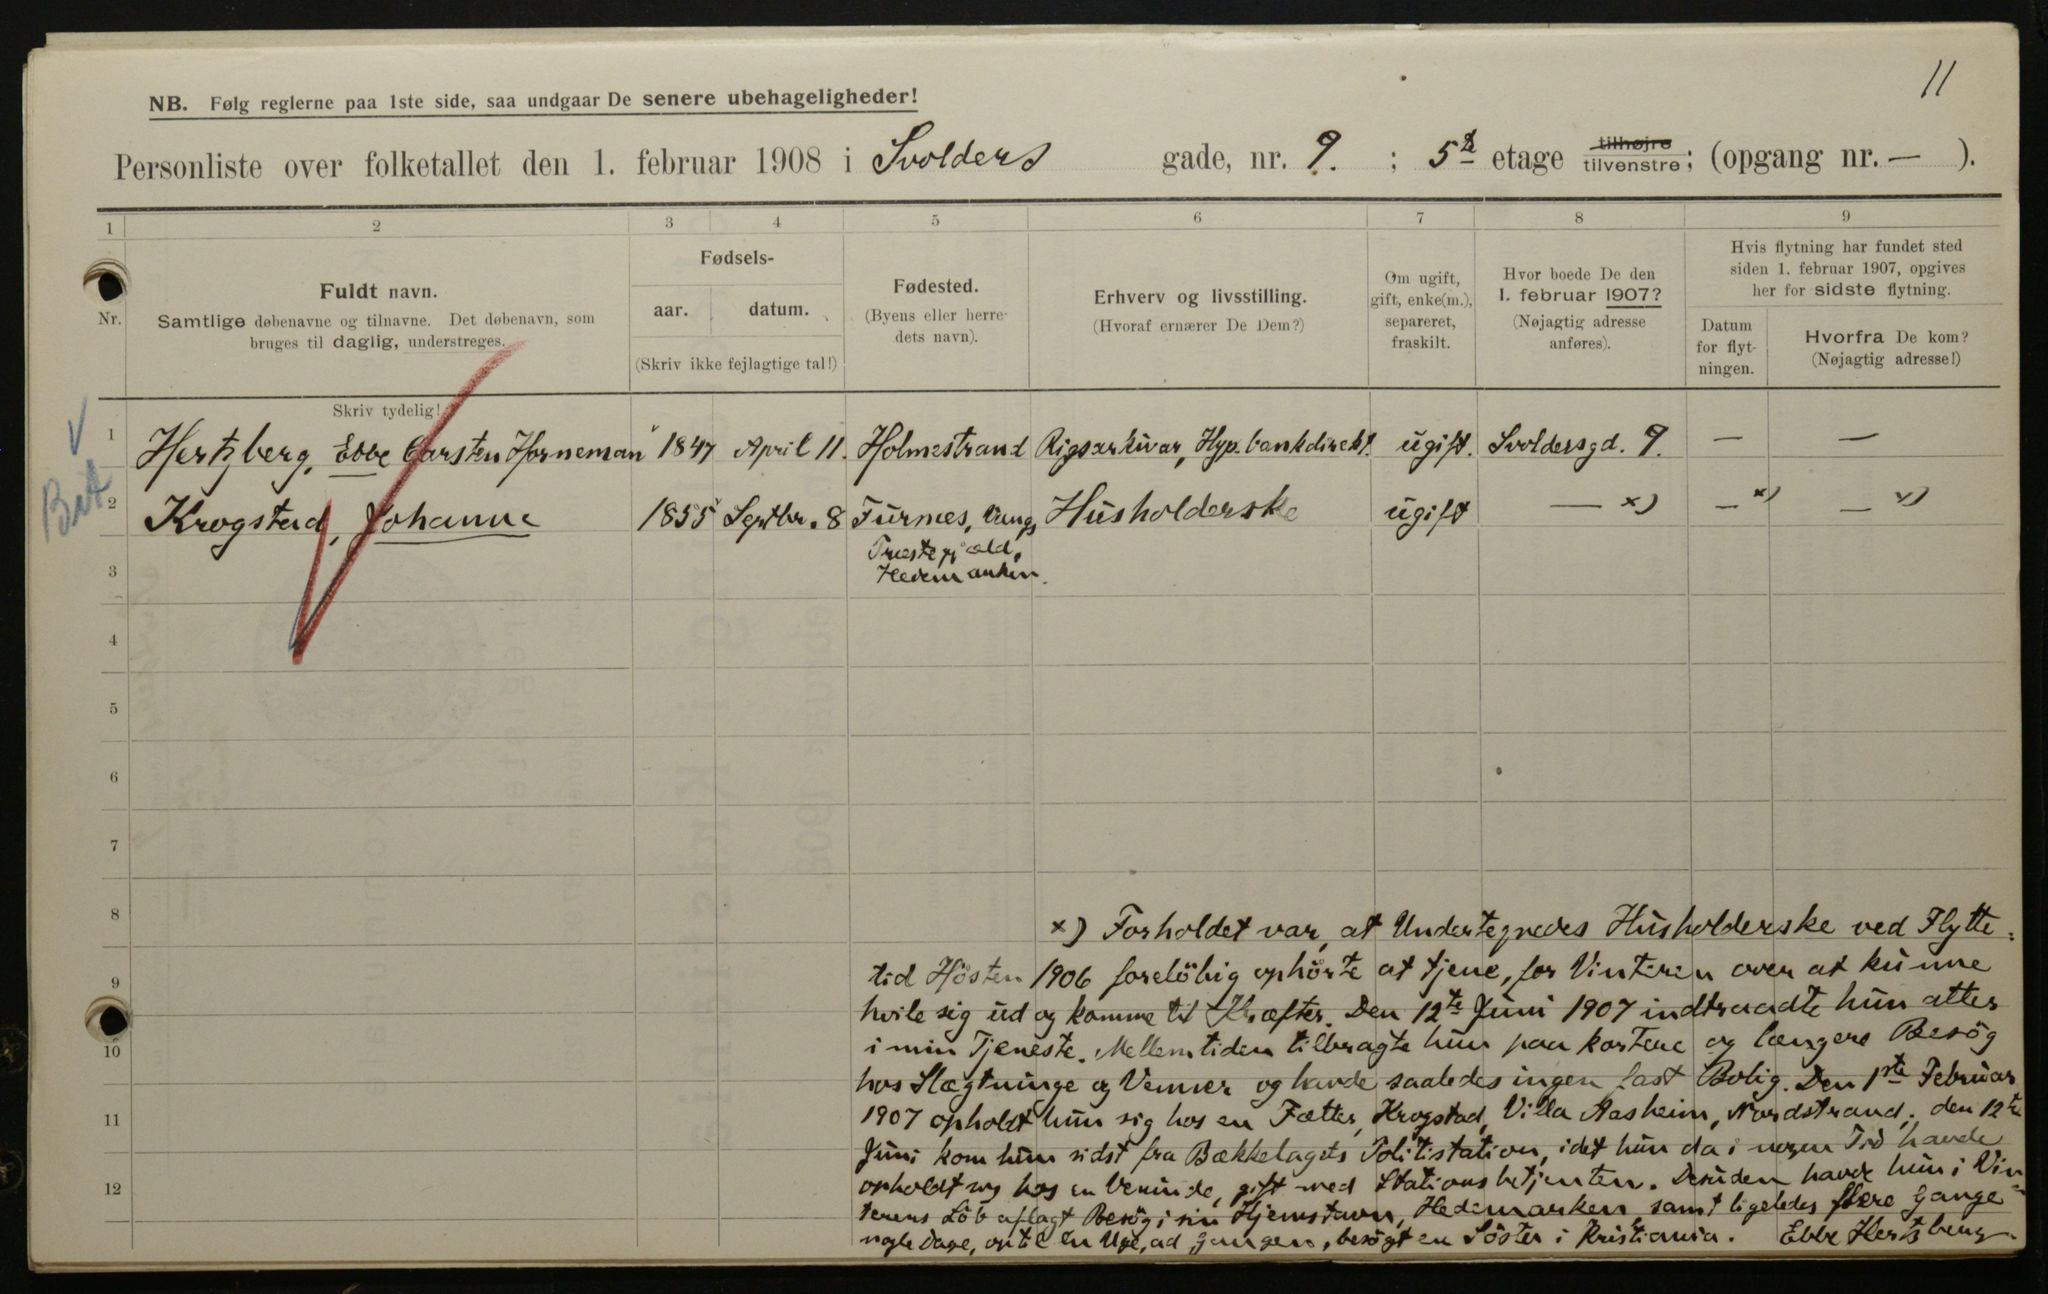 11
NB. Følg reglerne paa 1ste side, saa undgaar De senere ubehageligheder!
Personliste over folketallet den 1. februar 1908 i Svolders gade, nr. 9. ; 5te etage tilhøjre tilvenstre; (opgang nr. — ).
1 2 3 4 5 6 7 8 9
Nr.
Fuldt navn.
Samtlige døbenavne og tilnavne. Det døbenavn, som
bruges til daglig, understreges.
Skriv tydelig!
Fødsels-
aar. datum.
(Skriv ikke fejlagtige tal!)
Fødested.
(Byens eller herre-
dets navn).
Erhverv og livsstilling.
(Hvoraf ernærer De Dem?)
Om ugift,
gift, enke(m.),
separeret,
fraskilt.
Hvor boede De den
1. februar 1907?
(Nøjagtig adresse
anføres).
Hvis flytning har fundet sted
siden 1. februar 1907, opgives
her for sidste flytning.
Datum
for flyt-
ningen.
Hvorfra De kom?
(Nøjagtig adresse!)
1 Hertzberg, Ebbe Carsten Horneman 1847 April 11. Holmestrand Rigsarkivar, Hyp. bankdirekt. ugift. Svoldersgd. 9. — —
2 Krogstad, Johanne 1855 Septbr. 8 Furnes, Vangs Husholderske ugift — x) — x) — x)
Præstegjæld,
Hedemarken.
3
4
5
6
7
8
9
10
11
12
x) Forholdet var, at Undertegnedes Husholderske ved Flytte-
tid Hösten 1906 forelöbig ophörte at tjene, for Vinteren over at kunne
hvile sig ud og komme til Kræfter. Den 12te Juni 1907 indtraadte hun atter
i min Tjeneste. Mellemtiden tilbragte hun paa kortere og længere Besög
hos Slægtninge og Venner og havde saaledes ingen fast Bolig. Den 1ste Februar
1907 opholdt hun sig hos en Fætter, Krogstad, Villa Aasheim, Nordstrand; den 12te
Juni kom hun sidst fra Bækkelagets Politistation, idet hun da i nogen Tid havde
opholdt sig hos en Veninde, gift med Stationsbetjenten. Desuden havde hun i Vin-
terens Löb aflagt Besög i sin Hjemstavn, Hedemarken samt ligeledes flere Gange
nogle Dage, optil en Uge, ad Gangen, besögt en Söster i Kristiania. Ebbe Hertzberg.